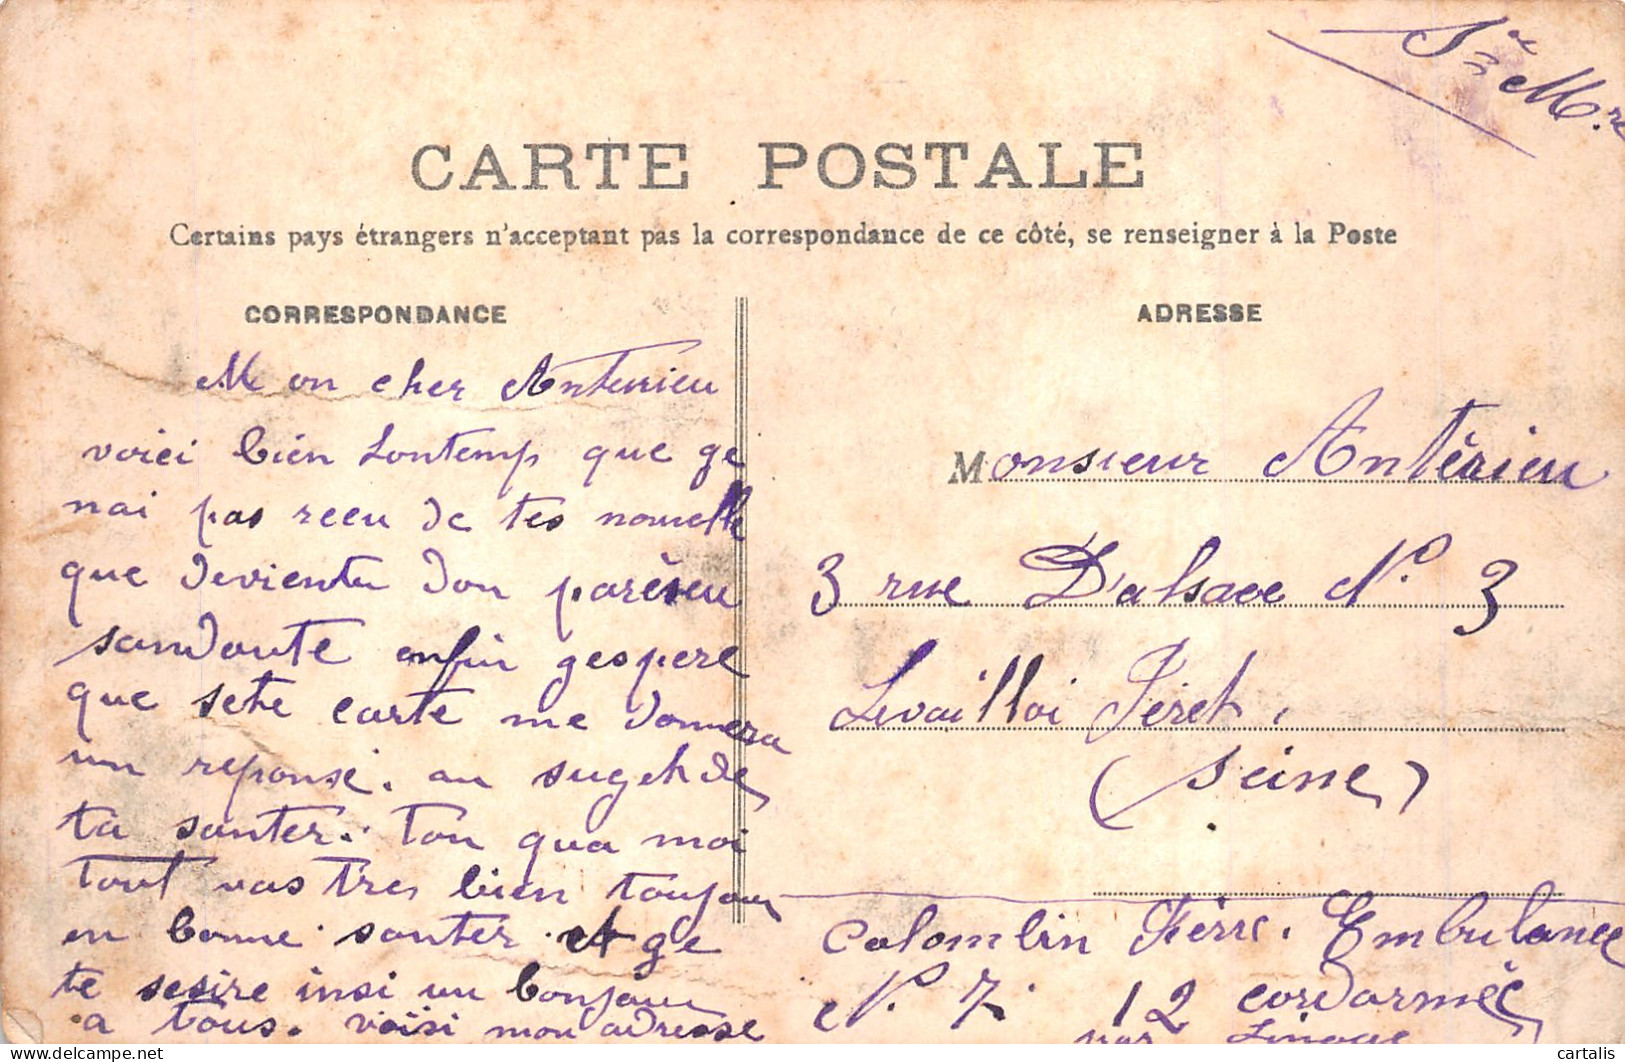 Sce Mre
CARTE POSTALE
Certains pays étrangers n'acceptant pas la correspondance de ce côté, se renseigner à la Poste
CORRESPONDANCE
Mon cher Anterieu
voici bien Lontemp que ge
nai pas recu de tes nouvelle
que devientu don paréseu
sandoute enfin gespere
que sete carte me donnera
un reponse. au suget de
ta santer. Ton qua moi
tout vas Tres bien toujour
en bonne santer et ge
te desire insi un bonjour
a tous. voisi mon adresse
ADRESSE
Monsieur Antérieu
3 rue D'alsace No. 3
Levailloi Péret,
(Seine)
Colombin Pierre. Embulance
N. 7. 12 cordarmée
par Limoge
cartalis
delcampe.net